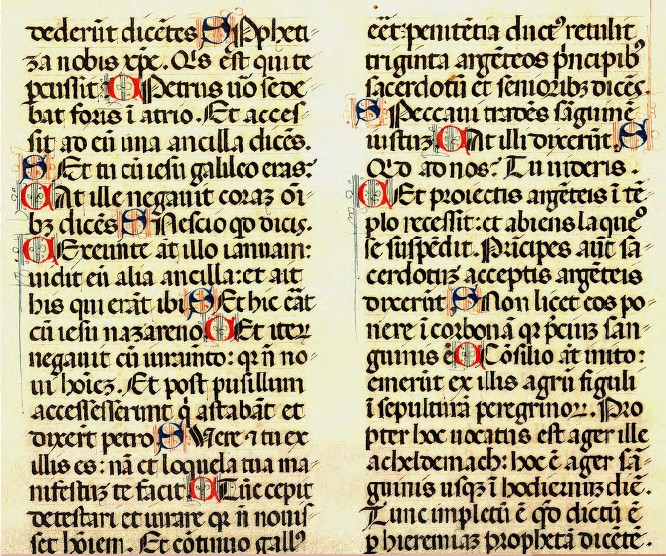 dederūt dicētes S Ꝓpheti-
za nobis xp̄e. Q̇s est qui te
ꝑcussit C Petrus ūo sede-
bat foris ī atrio. Et acces-
sit ad eū una ancilla dicēs.
S Et tu cū iesu galileo eras:
C At ille negauit corāꝫ oī-
bꝫ dicēs S Nescio qd dicis.
C Exeunte āt illo ianuam:
uidit eū alia ancilla: et ait
his qui erāt ibi S Et hic erāt
cū iesu nazareno C Et iteꝝ
negauit cū iuramto: qꝛ nō no-
ui hoīeꝫ. Et post pusillum
accessesserunt q̇ astabāt et
dixerūt petro S Uere ⁊ tu ex
illis es: nā et loquela tua ma-
nifestuꝫ te facit C Tūc cepit
detestari et iurare qꝛ nō nouis-
set hoīem. Et cōtinuo gallꝰ
eēt: penitētia ductꝰ retulit
triginta argēteos p̄ncipibꝰ
sacerdotū et senioribꝫ dicēs.
S Peccaui tradēs sāguinē
iustuꝫ C At illi dixerūt. S
Qd ad nos? Tu uideris.
C Et proiectis argēteis ī tē-
plo recessit: et abiens laqueo
se suspēdit. Prīcipes aūt sa-
cerdotuꝫ acceptis argēteis
dixerūt S Non licet eos po-
nere ī corbonā qꝛ p̄ciuꝫ san-
guinis ē C Cōsilio āt inito:
emerūt ex illis agrū figuli
ī sepulturā peregrinoꝝ. Pro-
pter hoc uocatus est ager ille
acheldemach: hoc ē ager sā-
guinis usqꝫ ī hodiernuꝫ diē.
Tunc impletū ē qd dictū ē
ꝑ hieremiaꝫ prophetā dicētē.